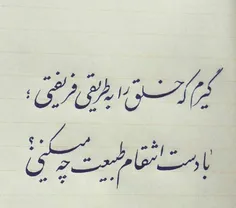 گیرم که خلق را به طریقی فریفتی؛
با دست انتقام طبیعت چه میکنی؟